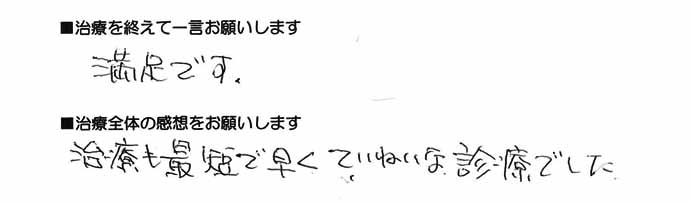 ■治療を終えて一言お願いします
満足です.
■治療全体の感想をお願いします
治療も最短で早くていねいな診療でした